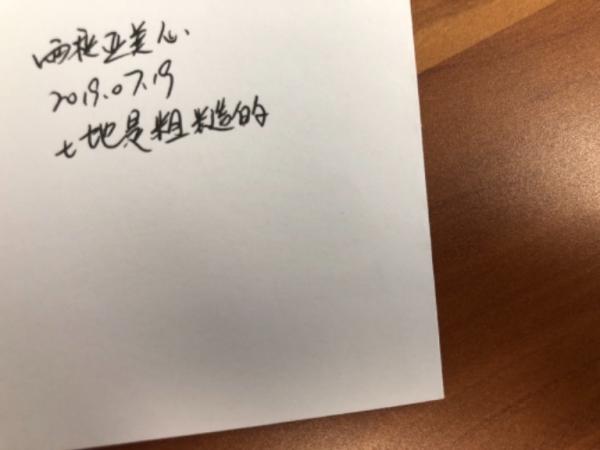 西柚亚美心
2019.07.19
土地是粗糙的